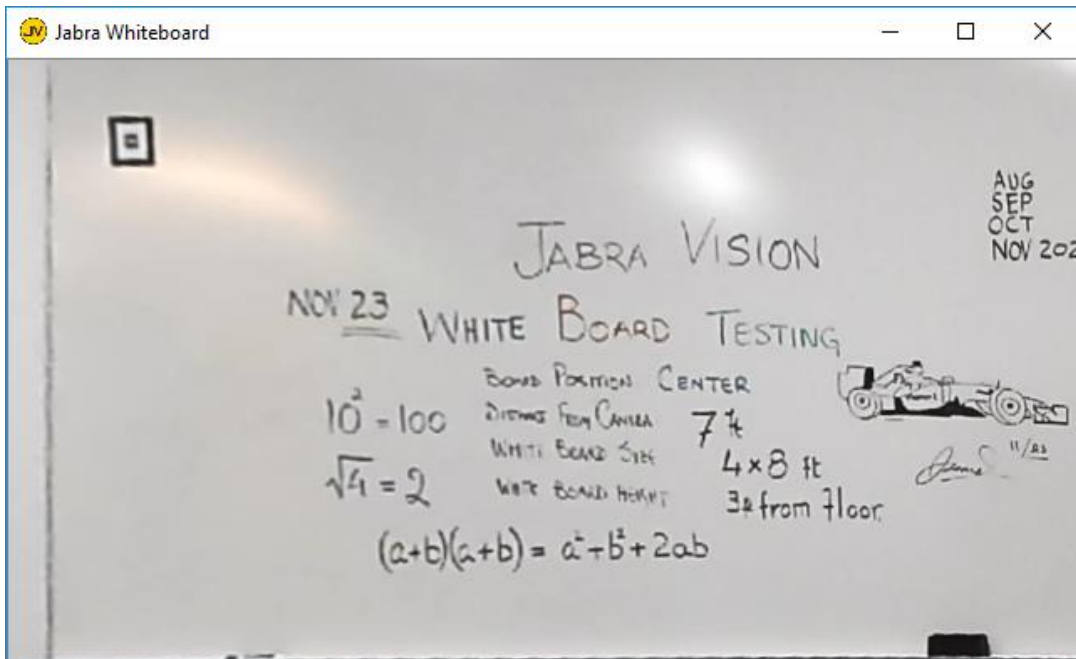 Jabra Whiteboard
AUG
SEP
OCT
NOV 202
JABRA VISION
NOV 23
WHITE BOARD TESTING
BOARD POSITION CENTER
10² = 100
DISTANCE FROM CAMERA 7 ft
WHITE BOARD SIZE 4 x 8 ft
√4 = 2
WHITE BOARD HEIGHT from floor.
(a+b)(a+b) = a² + b² + 2ab
11/23